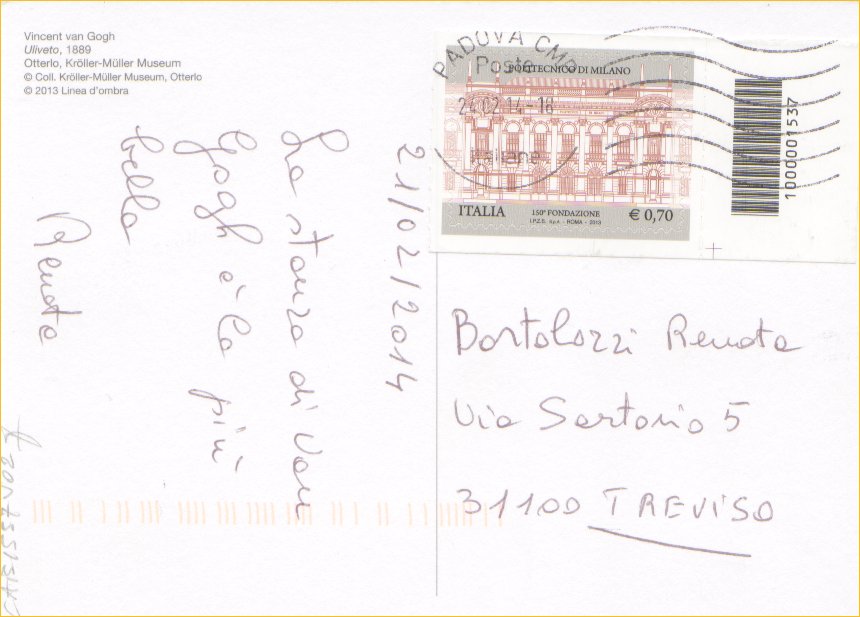 Vincent van Gogh
Uliveto, 1889
Otterlo, Kröller-Müller Museum
© Coll. Kröller-Müller Museum, Otterlo
© 2013 Linea d'ombra
PADOVA CMP
Poste
24 02 14 - 18
Italiane
POLITECNICO DI MILANO
ITALIA
150° FONDAZIONE
I.P.Z.S. S.p.A. - ROMA - 2013
€ 0,70
1000001537
21/02/2014
La stanza di Van
Gogh è la più
bella
Renata
Bortolozzi Renata
Via Sartorio 5
31100 TREVISO